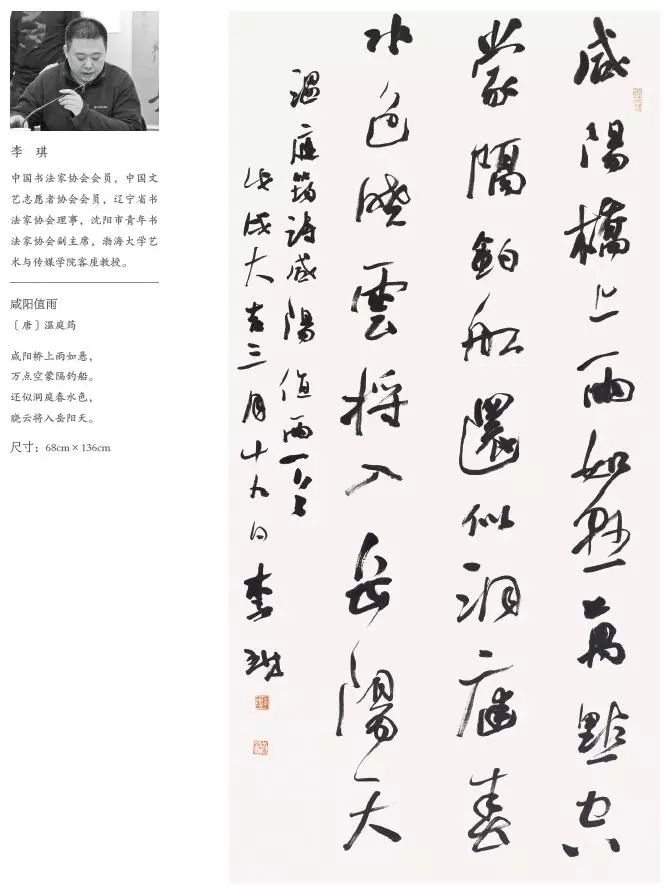 李 琪
中国书法家协会会员，中国文
艺志愿者协会会员，辽宁省书
法家协会理事，沈阳市青年书
法家协会副主席，渤海大学艺
术与传媒学院客座教授。
咸阳值雨
［唐］温庭筠
咸阳桥上雨如悬，
万点空蒙隔钓船。
还似洞庭春水色，
晓云将入岳阳天。
尺寸：68cm × 136cm
咸陽橋上雨如懸萬點空
蒙隔釣船還似洞庭春
水色曉雲將入岳陽天
温庭筠詩咸陽值雨一首
戊戌大吉三月十九日李琪